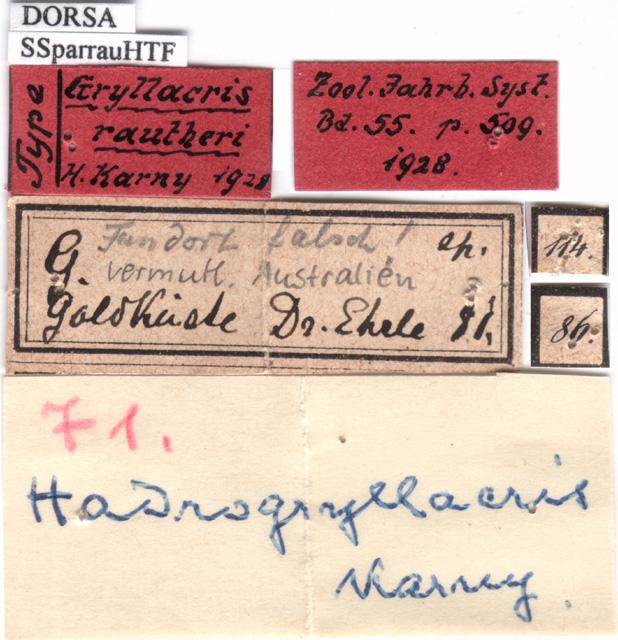 DORSA
SSparrauHTF
Type
Gryllacris
rautheri
H. Karny 1928
Zool. Jahrb. Syst.
Bd. 55. p. 509.
1928.
Fundort falsch!
G. sp.
vermutl. Australien
Goldküste Dr. Ehrle 81.
114.
86.
71.
Hadrogryllacris
Karny.